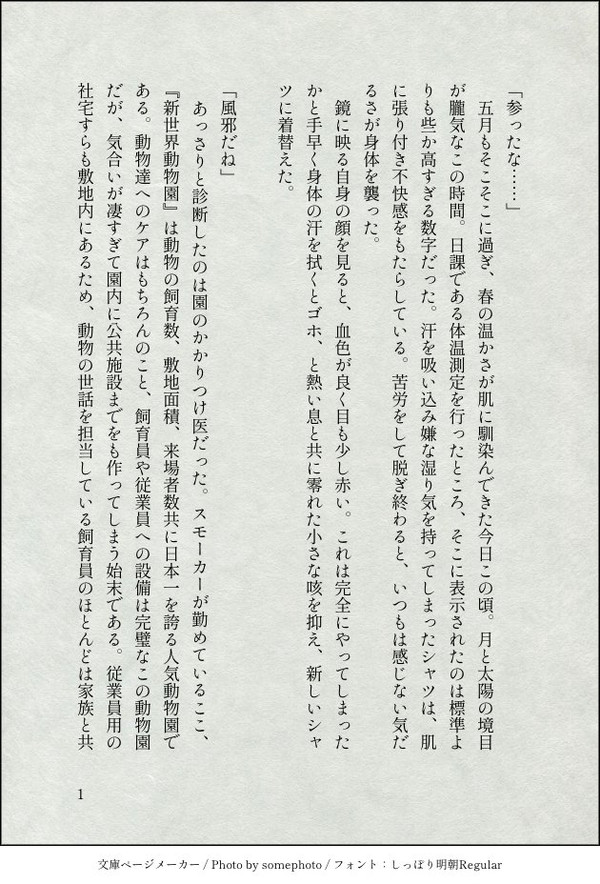 「参ったな……」
　五月もそこそこに過ぎ、春の温かさが肌に馴染んできた今日この頃。月と太陽の境目
が朧気なこの時間。日課である体温測定を行ったところ、そこに表示されたのは標準よ
りも些か高すぎる数字だった。汗を吸い込み嫌な湿り気を持ってしまったシャツは、肌
に張り付き不快感をもたらしている。苦労をして脱ぎ終わると、いつもは感じない気だ
るさが身体を襲った。
　鏡に映る自身の顔を見ると、血色が良く目も少し赤い。これは完全にやってしまった
かと手早く身体の汗を拭くとゴホ、と熱い息と共に零れた小さな咳を抑え、新しいシャ
ツに着替えた。
「風邪だね」
　あっさりと診断したのは園のかかりつけ医だった。スモーカーが勤めているここ、
『新世界動物園』は動物の飼育数、敷地面積、来場者数共に日本一を誇る人気動物園で
ある。動物達へのケアはもちろんのこと、飼育員や従業員への設備は完璧なこの動物園
だが、気合いが凄すぎて園内に公共施設までをも作ってしまう始末である。従業員用の
社宅すらも敷地内にあるため、動物の世話を担当している飼育員のほとんどは家族と共
1
文庫ページメーカー / Photo by somephoto / フォント：しっぽり明朝Regular